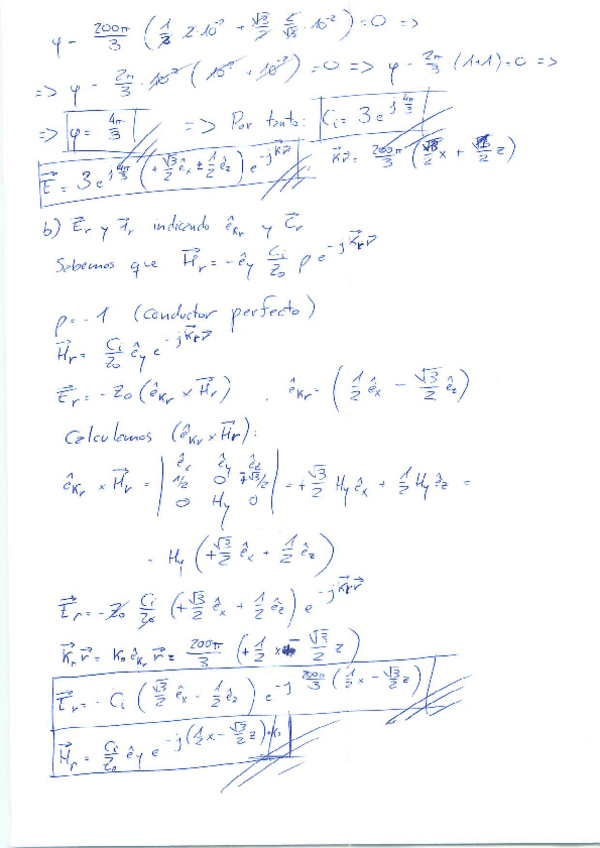 φ - 200π/3 (1/2 2·10⁻² + √3/2 2/√3 ·10⁻²) = 0 =>
=> φ - 2π/3 ·10² (10⁻² + 10⁻²) = 0 => φ - 2π/3 (1+1) = 0 =>
=> φ = 4π/3 => Por tanto: Ci = 3e^(j4π/3)
E = 3e^(j4π/3) (+√3/2 êx ± 1/2 êz) e^(-jk̄r̄) k̄r̄ = 200π/3 ( x + z)
b) Ēr y H̄r indicando êkr y Ēr
Sabemos que H̄r = -êy Ci/Z₀ ρ e^(-jk̄r r̄)
ρ = -1 (conductor perfecto)
H̄r = Ci/Z₀ êy e^(-jk̄r r̄)
Ēr = -Z₀ (êkr × H̄r) , êkr = (1/2 êx - √3/2 êz)
Calculamos (êkr × H̄r):
êkr × H̄r = | êx êy êz ; 1/2 0 -√3/2 ; 0 Hy 0 | = +√3/2 Hy êx + 1/2 Hy êz =
= Hy (+√3/2 êx + 1/2 êz)
Ēr = -Z₀ Ci/Z₀ (+√3/2 êx + 1/2 êz) e^(-jk̄r r̄)
k̄r r̄ = k₀ êkr r̄ = 200π/3 (+1/2 x - √3/2 z)
Ēr = - Ci (√3/2 êx - 1/2 êz) e^(-j 200π/3 (1/2 x - √3/2 z))
H̄r = Ci/Z₀ êy e^(-j(1/2 x - √3/2 z)·k₀)